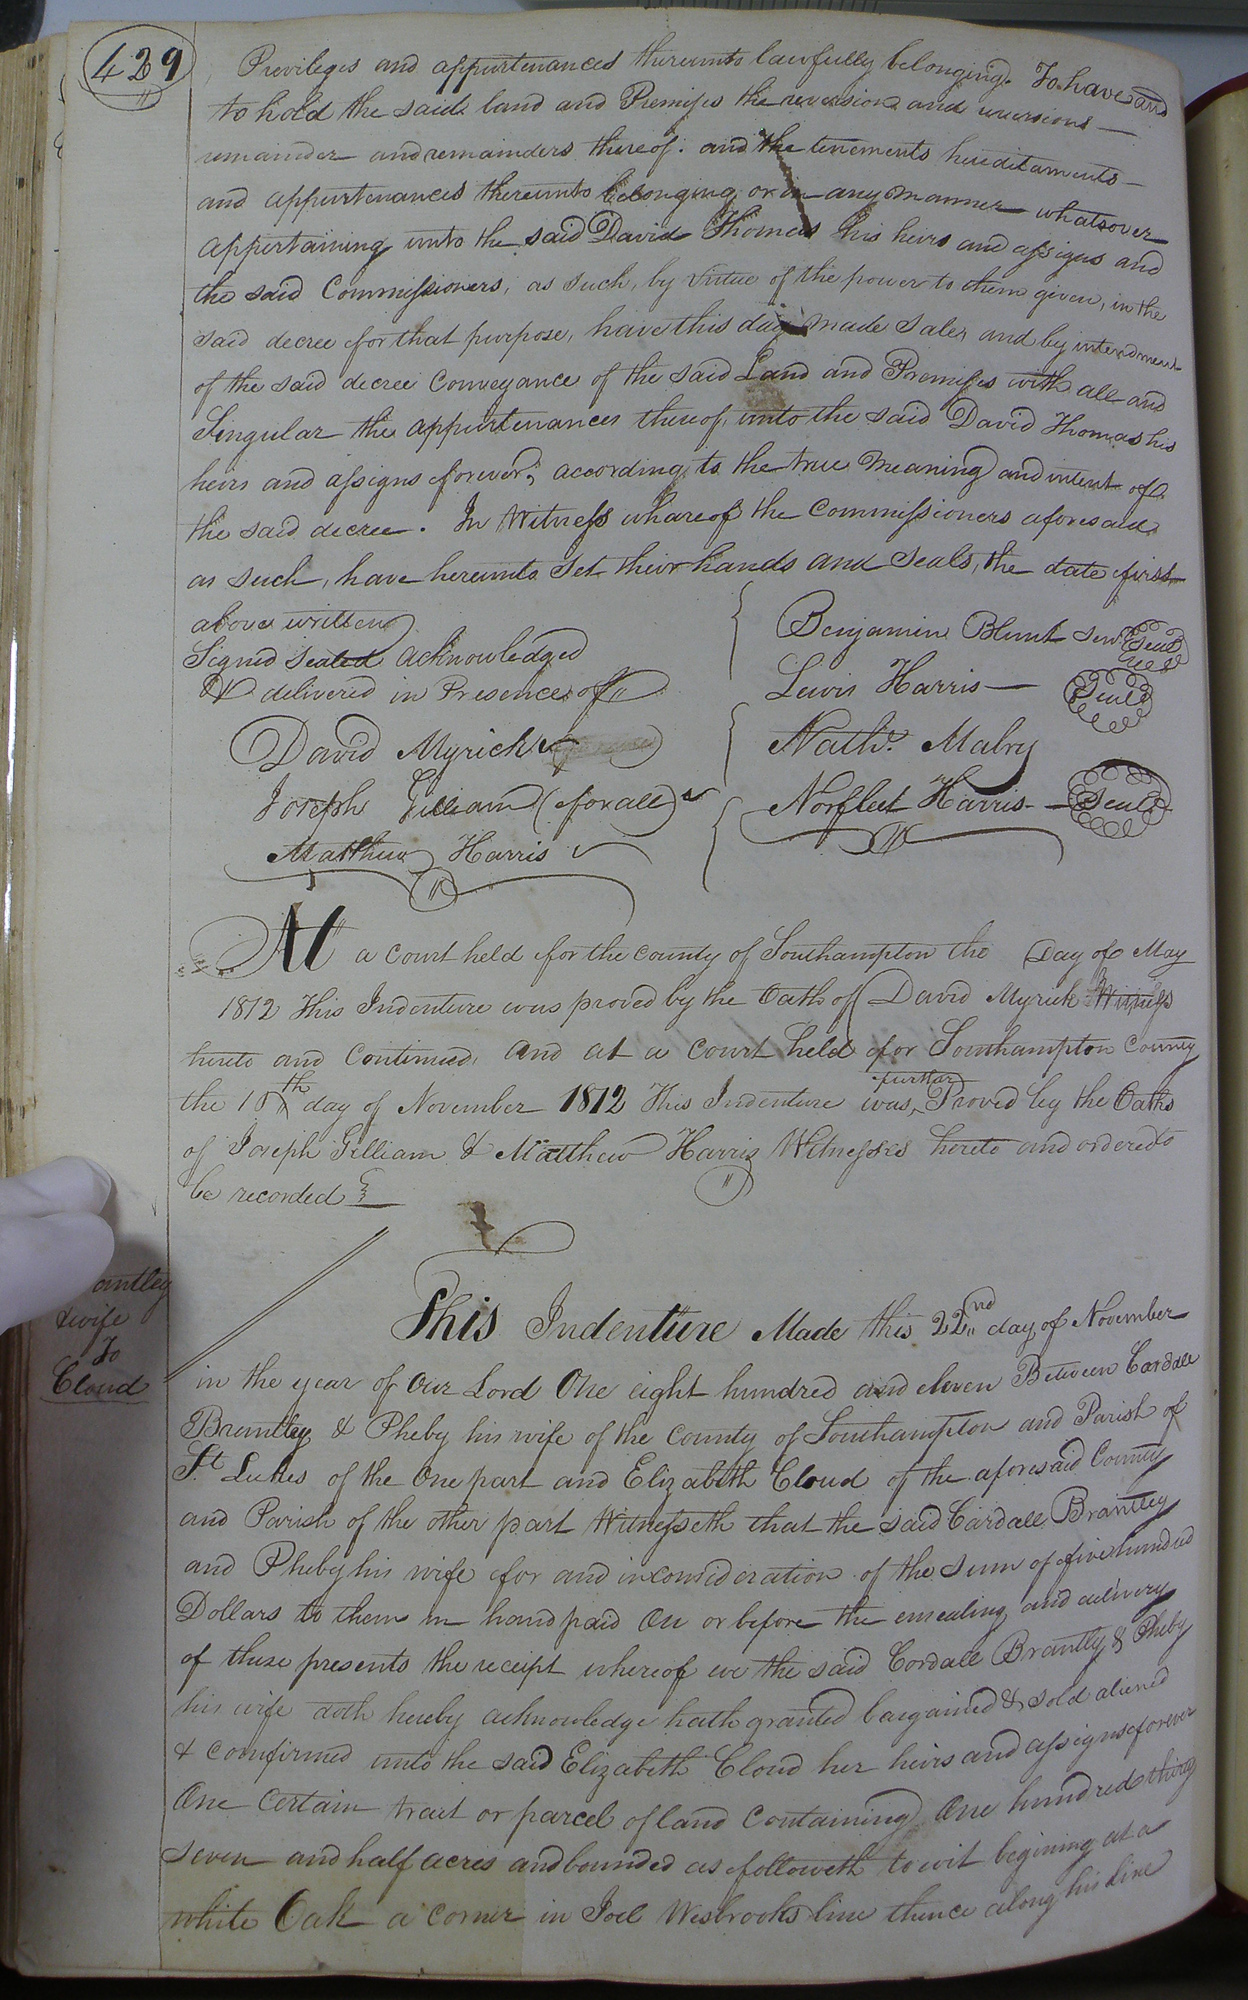 429
Privileges and appurtenances thereunto lawfully belonging. To have and
to hold the said land and Premises the reversion and reversions —
remainder and remainders thereof. and the tenements hereditaments —
and appurtenances thereunto belonging or in any manner whatsover
appertaining unto the said David Thomas his heirs and assigns and
the said Commissioners, as such, by virtue of the power to them given, in the
said decree for that purpose, have this day made sale, and by intendment
of the said decree Conveyance of the said Land and Premises with all and
Singular the appurtenances thereof, unto the said David Thomas his
heirs and assigns forever; according to the true meaning and intent of
the said decree. In Witness whareof the Commissioners aforesaid
as such, have hereunto Set their hands and Seals, the date first
above written
Signed Sealed acknowledged
& delivered in Presence of
Benjamin Blunt senr Seal
Lewis Harris — Seal
David Myrick
Nathl. Mabry
Joseph Gilliam (for all)
Norfleet Harris — Seal
Matthew Harris
At a court held for the county of Southampton the Day of May
1812 This Indenture was proved by the Oath of David Myrick a Witness
hereto and Continued, and at a court held for Southampton County
the 18th day of November 1812 This Indenture was further Proved by the Oaths
of Joseph Gilliam & Matthew Harris Witnesses hereto and ordered to
be recorded
antley
& wife
To
Cloud
This Indenture Made this 22nd day of November
in the year of Our Lord One eight hundred and eleven Between Cordall
Brantley & Pheby his wife of the County of Southampton and Parish of
St Lukes of the One part and Elizabeth Cloud of the aforesaid County
and Parish of the other part Witnesseth that the said Cardall Brantley
and Pheby his wife for and in consideration of the sum of five hundred
Dollars to them in hand paid On or before the ensealing and delivery
of these presents the receipt whereof we the said Cordall Brantly & Pheby
his wife doth hereby acknowledge hath granted bargained & sold aliened
& comfirmed unto the said Elizabeth Cloud her heirs and assigns forever
One Certain tract or parcel of land Containing One hundred thirty
seven and half acres and bounded as followeth to wit begining at a
white Oak a corner in Joel Wesbrooks line thence along his line